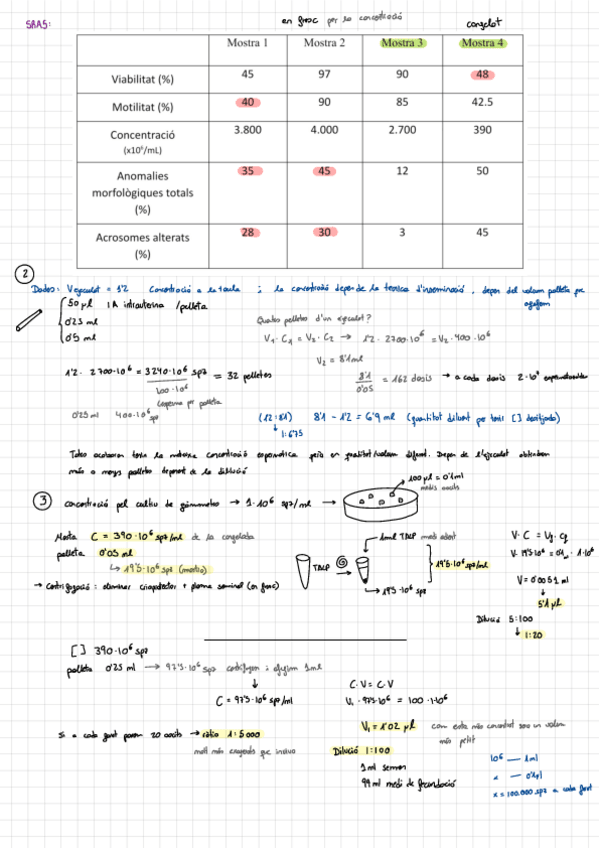 SBA5:
en fresc per la concentració
congelat
Mostra 1 Mostra 2 Mostra 3 Mostra 4
Viabilitat (%) 45 97 90 48
Motilitat (%) 40 90 85 42.5
Concentració (x10⁶/mL) 3.800 4.000 2.700 390
Anomalies morfològiques totals (%) 35 45 12 50
Acrosomes alterats (%) 28 30 3 45
②
Dades: V ejaculat = 1'2 Concentració a la taula ; la concentració depen de la tecnica d'inseminació, depen del volum palleta que
50 µl IA intrauterina /palleta
0'25 ml
0'5 ml
Quantes palletes d'un ejaculat?
V₁ · C₁ = V₂ · C₂ → 1'2 · 2700·10⁶ = V₂ · 400 · 10⁶
V₂ = 8'1 ml
1'2 · 2700·10⁶ = 3240·10⁶ spz / 100·10⁶ = 32 palletes
per palleta
8'1 / 0'05 = 162 dosis → a cada dosis 2·10⁶
0'25 ml 400·10⁶ spz
(1'2:8'1) 8'1 - 1'2 = 6'9 ml (quantitat diluent per tenir [ ] desitjada)
↓
1:6'75
Totes acabaran tenint la mateixa concentració espermàtica però en quantitat/volum diferent. Depen de l'ejaculat obtindrem
més o menys palletes depenent de la dilució
③ concentració pel cultiu de gàmetes → 1·10⁶ spz/ml →
100 µl = 0'1 ml
Mostra C = 390·10⁶ spz/ml de la congelada
palleta 0'05 ml
↳ 19'5·10⁶ spz
→ Centrifugació: eliminar crioprotector + plasma seminal (en fresc)
TALP
1 ml TALP
19'5·10⁶ spz/ml
19'5·10⁶ spz
V · C = V₂ · C₂
V · 19'5·10⁶ = 0'1 · 1·10⁶
V = 0'0051 ml
↓
5'1 µl
Dilució 5:100
↓ 1:20
[ ] 390·10⁶ spz
palleta 0'25 ml → 97'5·10⁶ spz centrifugem i afegim 1 ml
↓
C = 97'5·10⁶ spz/ml
C·V = C·V
V₁ · 97'5·10⁶ = 100·1·10⁶
V₁ = 1'02 µl
com està més concentrat serà un volum
més petit
Si a cada gota posem 20 oocits → ràtio 1:5000
molt més exagerada que in vivo
Dilució 1:100
1 ml semen
99 ml medi de fecundació
10⁶ — 1 ml
x — 0'1 ml
x = 100.000 spz a cada gota